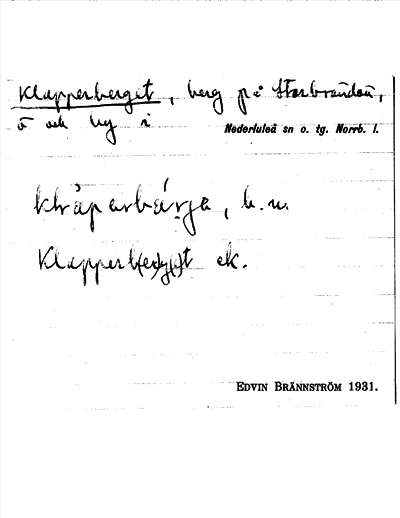 Klapperberget, berg på Storbrändön,
ö och by i Nederluleå sn o. tg. Norrb. l.
b. n.
Klapperb(er)g(e)t ek.
EDVIN BRÄNNSTRÖM 1931.